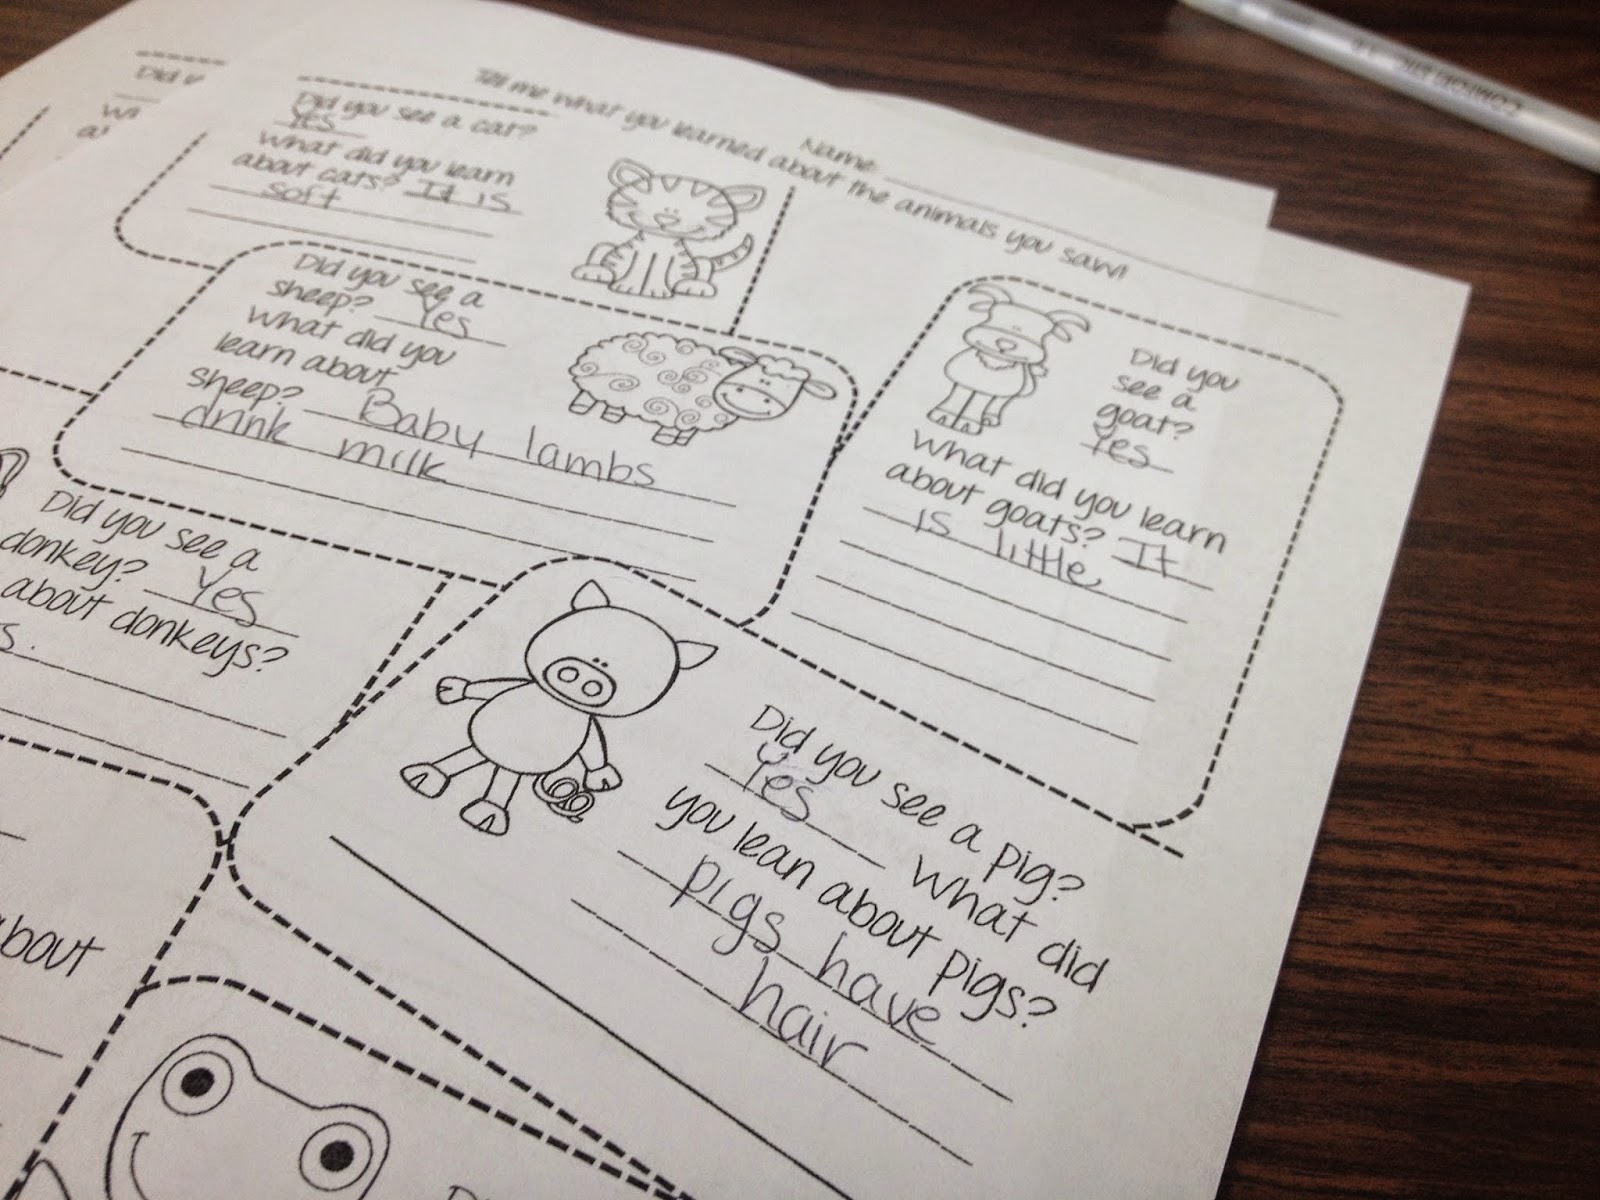 Name
Tell me what you learned about the animals you saw!
Did you see a cat?
Yes
What did you learn
about cats? It is
soft
Did you see a
sheep? Yes
What did you
learn about
sheep? Baby lambs
drink milk
Did you
see a
goat?
Yes
What did you learn
about goats? It
is little
Did you see a
donkey? Yes
about donkeys?
s.
Did you see a pig?
Yes What did
you lean about pigs?
pigs have
hair
about